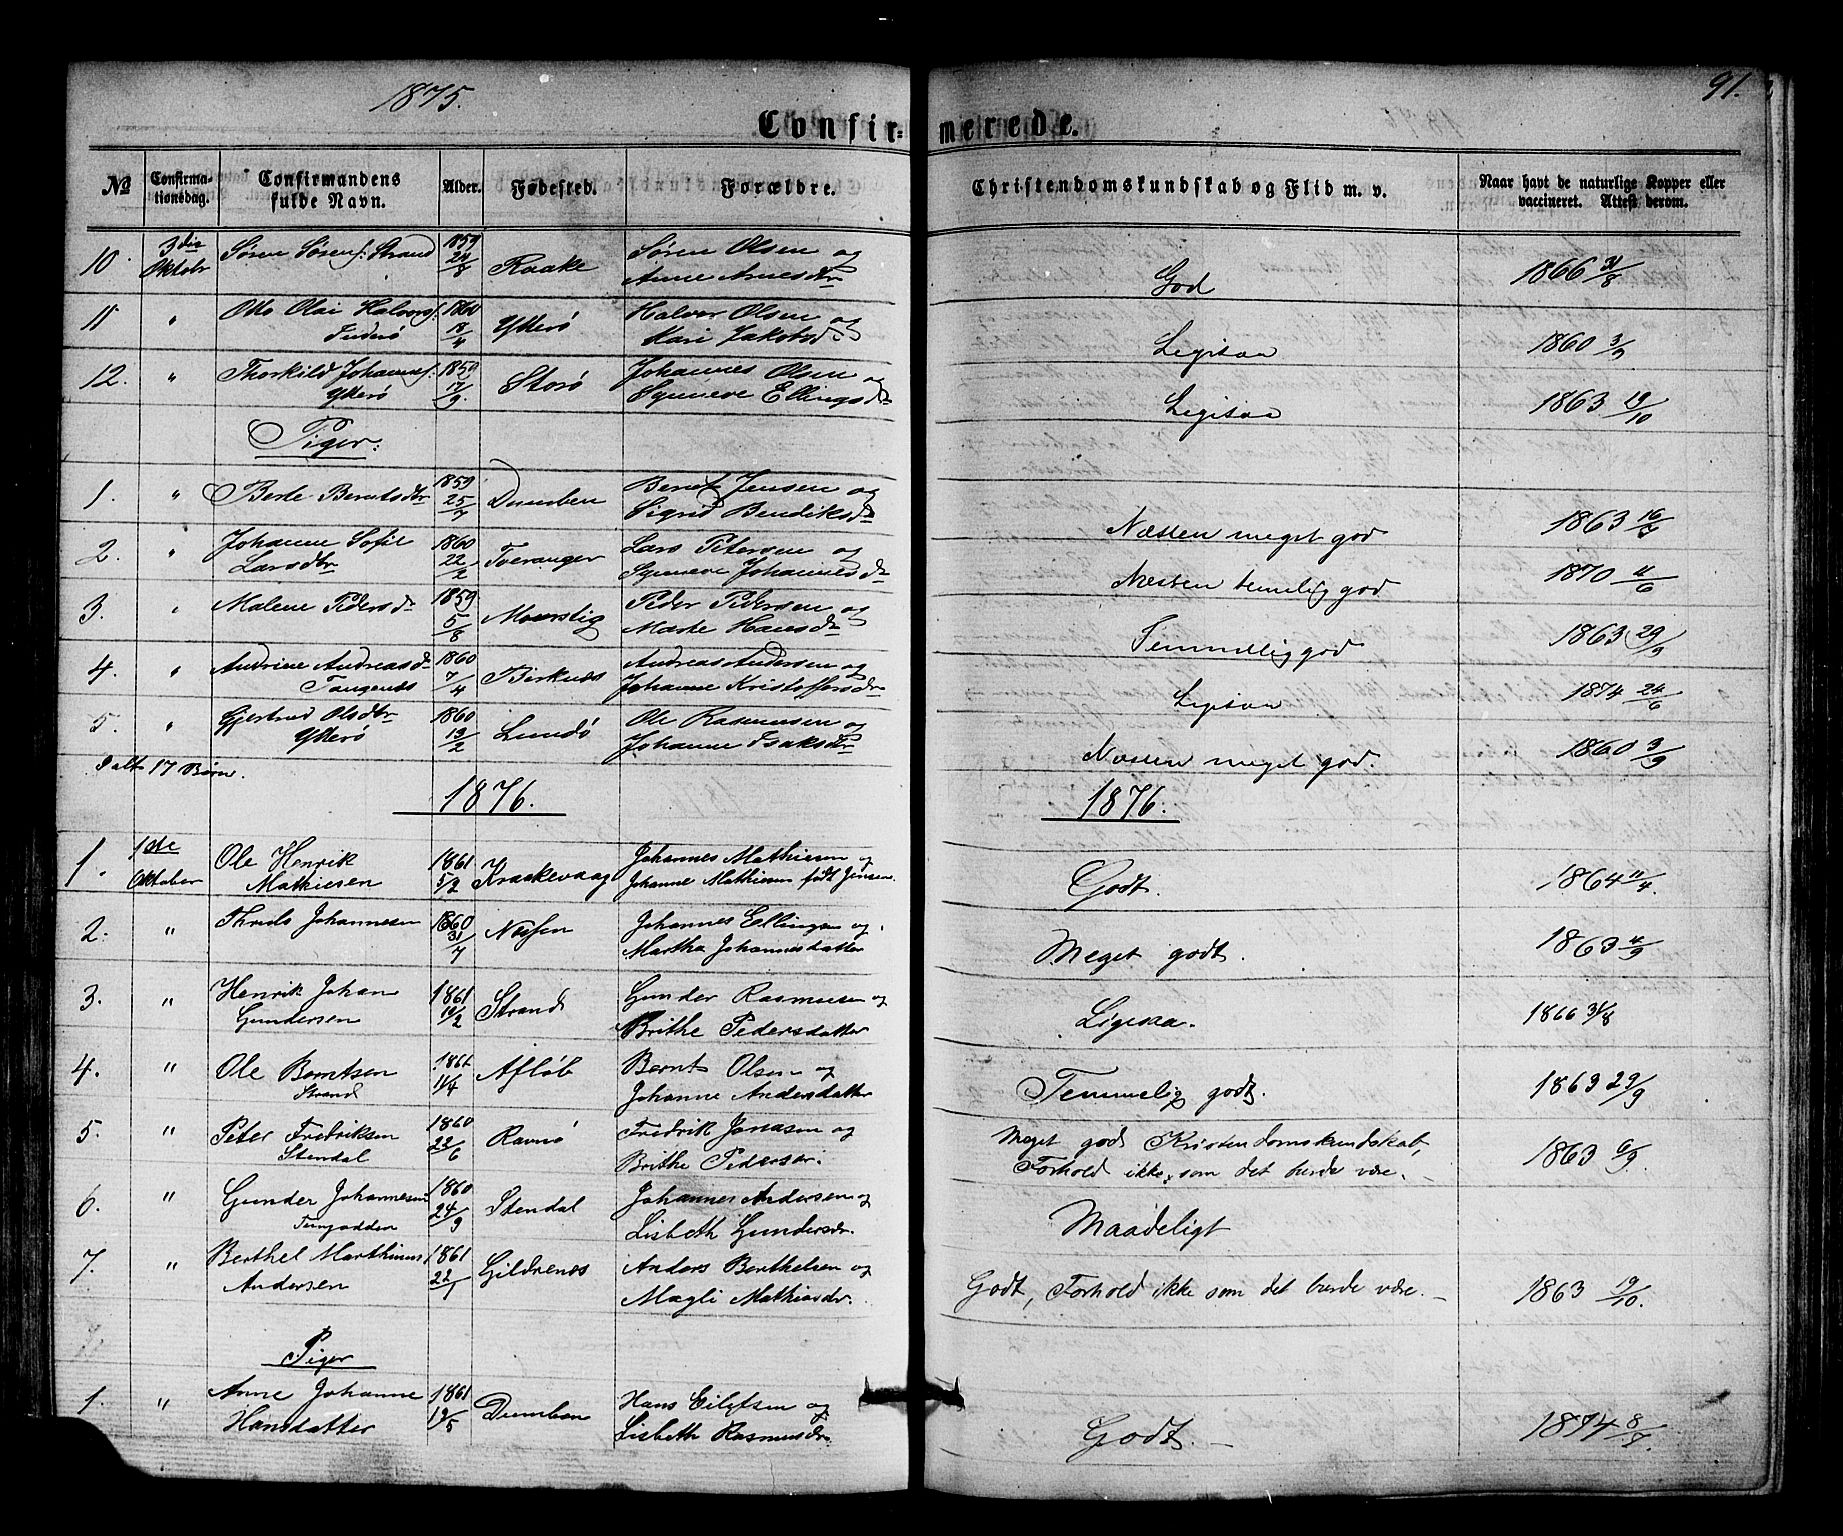 1875.
91.
Confirmerede.
No
Confirmationsdag.
Confirmandens fulde Navn.
Alder.
Fødested.
Forældre.
Christendomskundskab og Flid m. v.
Naar havt de naturlige Kopper eller vaccineret. Attest derom.
10. 3die Oktobr Søren Sørens. Strand 1859 24/8 Raake Søren Olsen og Anne Arnesdtr God 1866 31/8
11 " Otto Olai Halvors. 1860 18/4 Ytterø Halvor Olsen og Kari Jakobsd Ligesaa 1860 3/9
12. " Thorkild Johannes. Ytterø 1859 17/9. Storø Johannes Olsen og Synneve Ellingsdtr Ligesaa 1863 19/10
Piger:
1. " Berte Berntsdtr 1859 25/7 Dumben Bernt Jensen og Sigrid Bendiksdtr Næsten meget god 1863 16/7
2. " Johanne Sofie Larsdtr 1860 22/2 Tveranger Lars Petersen og Synneve Johannesdtr Næsten temelig god 1870 11/6
3. " Malene Pedersdtr 1859 5/8 Peder Pedersen og Marte Hansdtr Temmelig god 1863 29/9
4. " Andrine Andreasdtr Tangenæs 1860 7/4 Birknæs Andreas Andersen og Johanne Kristoffersdtr Ligesaa 1874 24/6
5. " Gjertrud Olsdtr Ytterø 1860 19/2 Lundø Ole Rasmussen og Johanne Isaksdtr Næsten meget god. 1860 3/9
Ialt 17 Børn.
1876.
1876.
1. 1ste Oktober Ole Henrik Mathiesen 1861 5/2 Kraakevaag Johannes Mathiesen og Johanne Mathiesen født Jensen. Godt. 1864 11/4.
2. " Johannesen 1860 31/7 Johannes Ellingsen og Martha Johannesdatter Meget godt. 1863 4/9
3. " Henrik Johan Gundersen 1861 19/2 Strand Gunder Rasmusen og Brithe Pedersdatter Ligesaa. 1866 31/8
4. " Ole Berntsen Strand 1861 11/4 Afløb Bernt Olsen og Johanne Andersdatter Temmelig godt. 1863 29/9
5. " Peter Fredriksen Stendal 1860 22/6 Ravnø Fredrik Jonasen og Brithe Pedersdr. Meget god Kristendomskundskab, Forhold ikke, som det burde være. 1863 6/9.
6. " Gunder Johannesen 1860 24/9 Stendal Johannes Andersen og Lisbeth Gundersdr. Maadeligt
7. " Berthel Marthinus Andersen 1861 22/1 Gildrenæs Anders Berthelsen og Magli Mathiasdr. Godt, Forhold ikke som det burde være. 1863 19/10.
Piger
1. " Anne Johanne Hansdatter 1861 19/5 Dumben Hans Eilefsen og Lisbeth Rasmusdr Godt. 1874 8/7